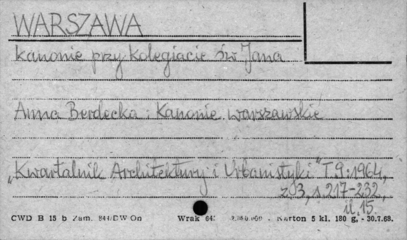 WARSZAWA
kanonie przy kolegiacie św Jana
Anna Berdecka : Kanonie warszawskie
„Kwartalnik Architektury i Urbanistyki" T.9:1964,
z.3, s.217-232,
il.15.
CWD B 15 b Zam. 844/DW-On Wrak 64: Karton 5 kl. 180 g. - 30.7.63.